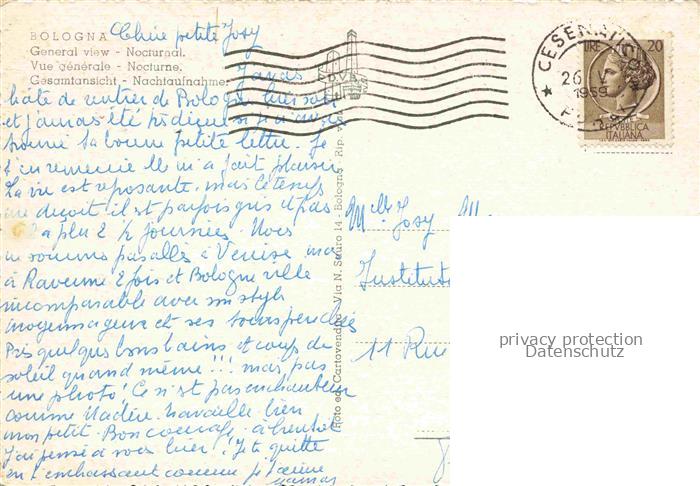 BOLOGNA
General view - Nocturnal.
Vue générale - Nocturne.
Gesamtansicht - Nachtaufnahme.
Chère petite Josy
J'avais
hâte de rentrer de Bologne hier soir
et j'ai
bonne petite lettre. Je
t'en remercie elle m'a fait plaisir
La vie est reposante, mais le temps
me déçoit il est parfois gris et pas
a plu 2 ½ journées. Nous
ne sommes pas allés à Venise mais
à Ravenne 2 fois et Bologne ville
incomparable avec son style
moyenageux et ses tours penchées
Pris quelques bons bains et coup de
soleil quand même !!! mais pas
une photo! Ce n'est pas enchanteur
comme Madère. travaille bien
mon petit. Bon courage, à bientôt
J'ai pensé à vous hier! Je te quitte
en t'embrassant comme je t'aime
maman
Foto ed. Cartovendita - Via N. Sauro 14 - Bologna - Rip. vie
CESENATICO
26 V
1959
LIRE 20
REPUBBLICA
ITALIANA
Mlle Josy
Institut
11 Rue
privacy protection
Datenschutz